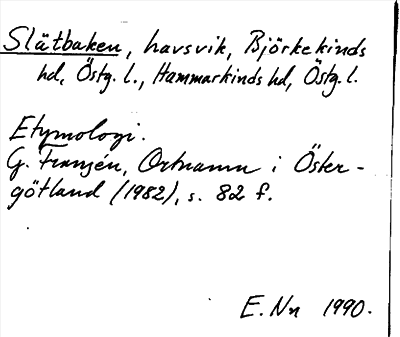 Slätbaken, havsvik, Björkekinds
hd, Östg. l., Hammarkinds hd, Östg. l.
Etymologi.
G. Franzén, Ortnamn i Öster-
götland (1982), s. 82 f.
E. Nn 1990.